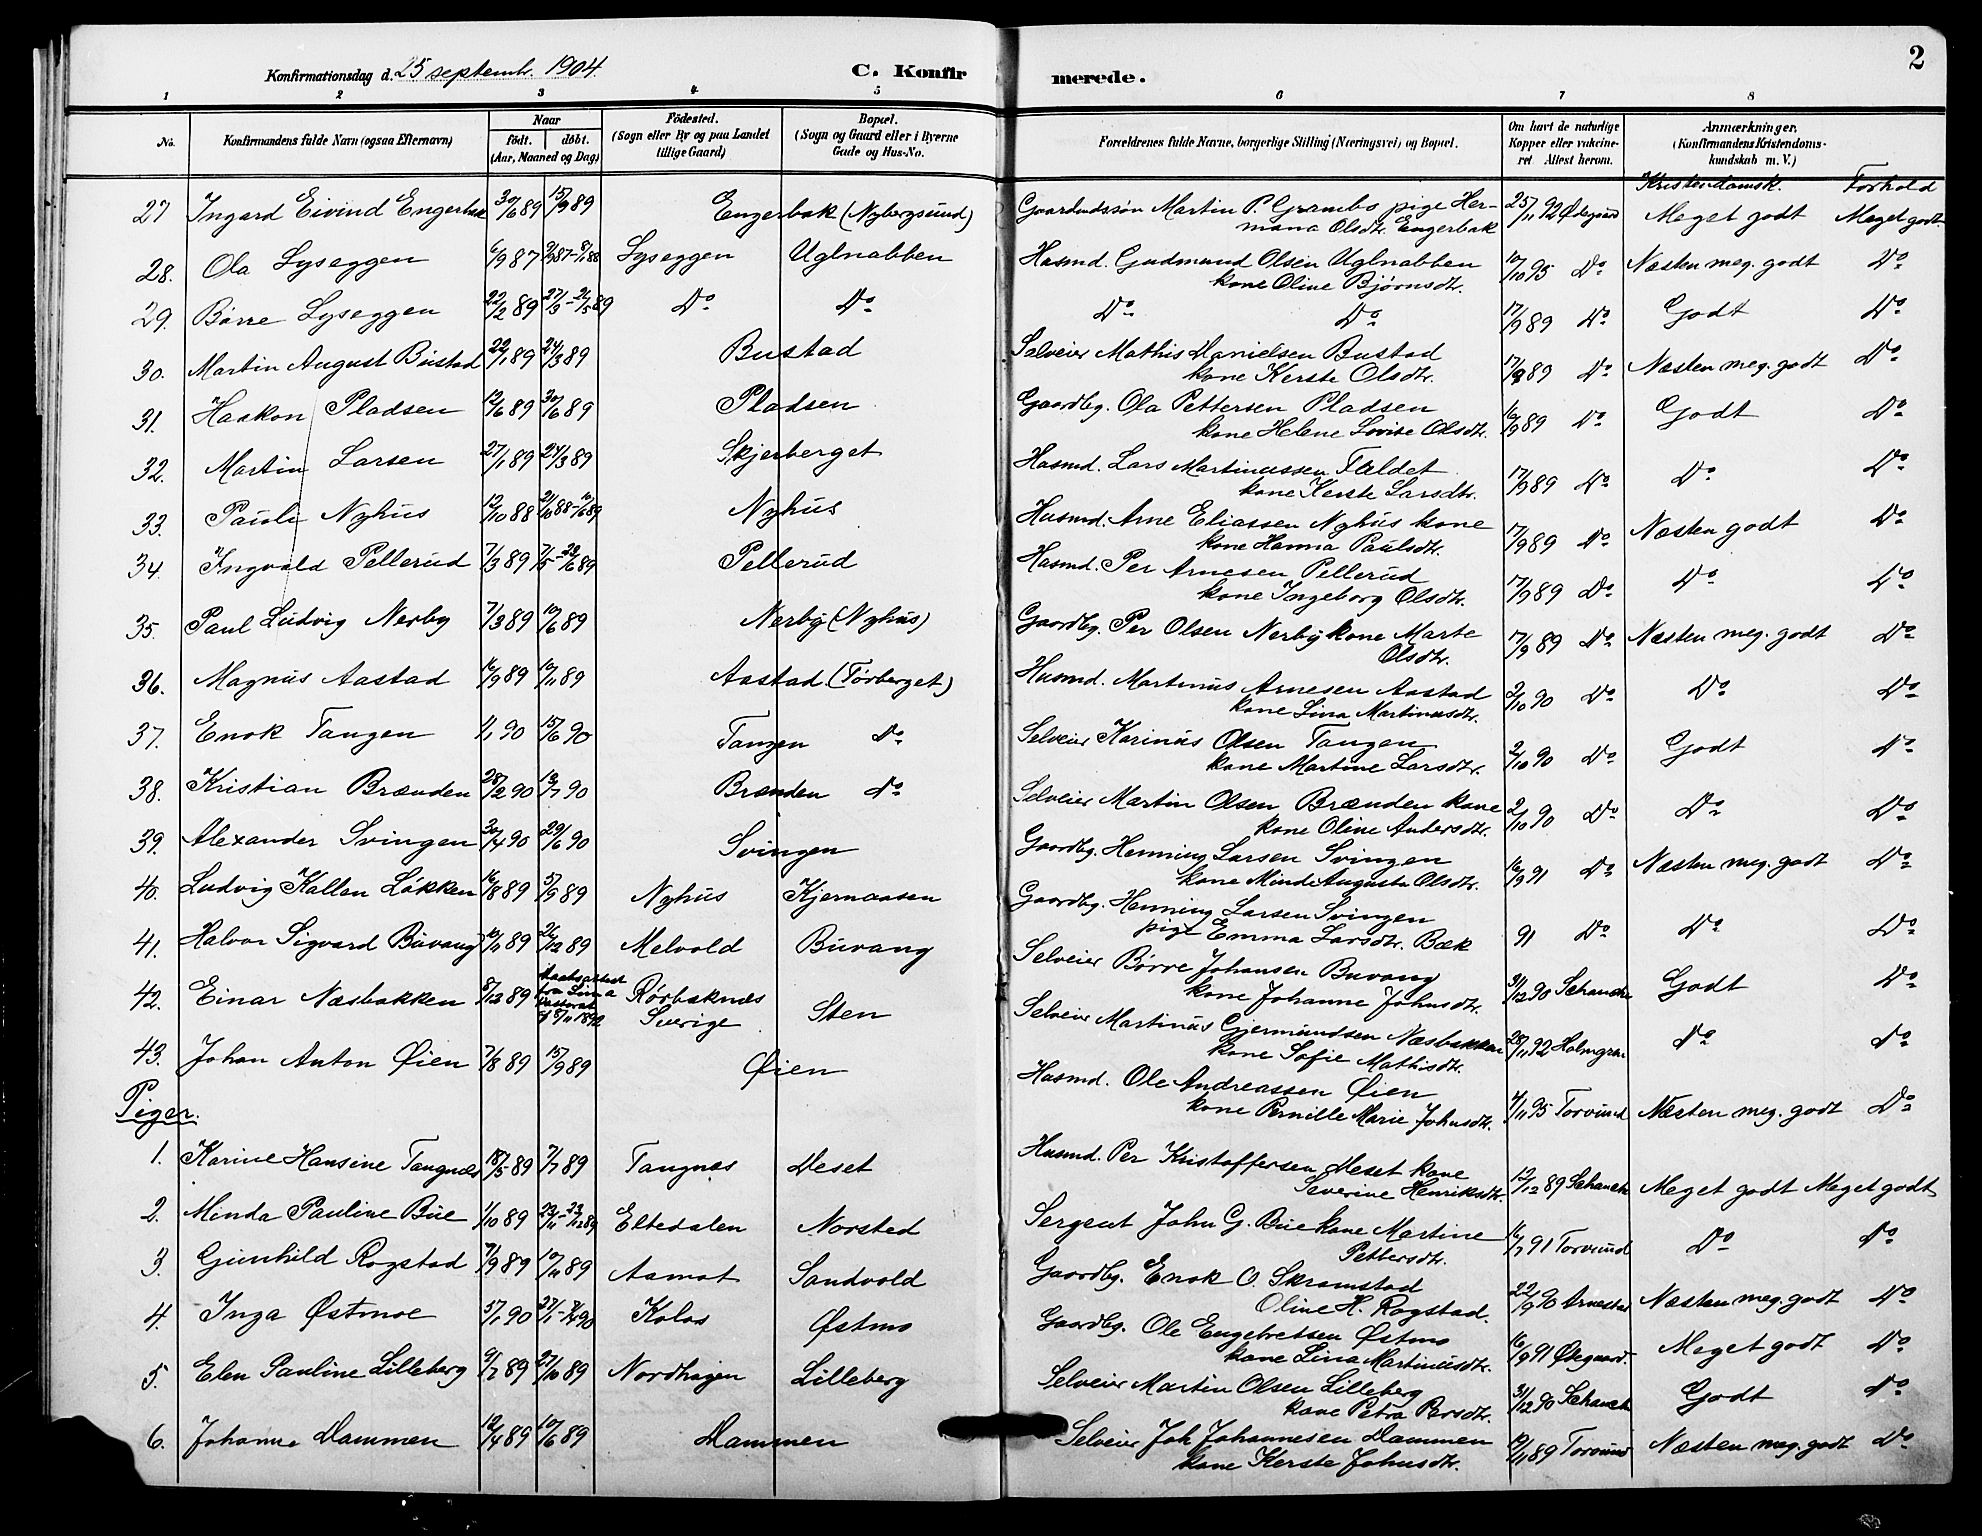 2
Konfirmationsdag d. 25 septembr. 1904. C. Konfirmerede.
1 2 3 4 5 6 7 8
No. Konfirmandens fulde Navn (ogsaa Efternavn) Naar födt. döbt. (Aar, Maaned og Dag) Födested. (Sogn eller By og paa Landet tillige Gaard) Bopæl. (Sogn og Gaard eller i Byerne Gade og Hus-No. Forældrenes fulde Navne, borgerlige Stilling (Næringsvei) og Bopæl. Om havt de naturlige Kopper eller vakcineret Attest herom. Anmærkninger, (Konfirmandens Kristendomskundskab m. V.)
Kristendomsk. Forhold
27 Ingard Eivind Engerbak 30/6 89 15/9 89 Engerbak (Nybergsund) Gaardmdssøn Martin P. Grambo pige Hermana Olsdtr. Engerbak 25/11 92 Ødegaard Meget godt Meget godt.
28. Ola Lyseggen 6/9 87 Lyseggen Uglnabben Husmd. Gudmund Olsen Uglnabben kone Oline Bjørnsdtr. 10/10 95 Do Næsten meg. godt Do
29. Børre Lyseggen 22/2 89 27/3 - 26/5 89 Do Do Do Do 17/9 89 Do Godt Do
30. Martin August Bustad 22/1 89 24/3 89 Bustad Selveier Mathis Danielsen Bustad kone Kerste Olsdtr. 17/9 89 Do Næsten meg. godt Do
31. Haakon Pladsen 12/6 89 30/6 89 Pladsen Gaardbg. Ola Pettersen Pladsen kone Helene Lovise Olsdtr. 16/9 89 Do Godt Do
32. Martin Larsen 27/1 89 24/3 89 Skjerberget Husmd. Lars Martinussen Fældet kone Kerste Larsdtr. 17/9 89 Do Do Do
33. Pauli Nyhus 12/10 88 Nyhus Husmd. Arne Eliassen Nyhus kone kone Hanna Paulsdtr. 17/9 89 Do Næsten godt Do
34. Ingvald Pellerud 7/3 89 7/5 - 23/6 89 Pellerud Husmd. Per Arnesen Pellerud kone Ingeborg Olsdtr. 17/9 89 Do Do Do
35. Paul Ludvig Nerby 7/3 89 10/6 89 Nerby (Nyhus) Gaardbg. Per Olsen Nerby kone Marte Olsdtr. 17/9 89 Do Næsten meg. godt Do
36. Magnus Aastad 16/9 89 10/11 89 Aastad (Tørberget) Husmd. Martinus Arnesen Aastad kone Lina Martinusdtr. 2/10 90 Do Do Do
37. Enok Tangen 4/1 90 15/6 90 Tangen Do Selveier Karinus Olsen Tangen kone Martine Larsdtr. 2/10 90 Do Godt Do
38. Kristian Brænden 28/2 90 13/7 90 Brænden Do Selveier Martin Olsen Brænden kone kone Oline Andersdtr. 2/10 90 Do Do Do
39. Alexander Svingen 30/4 90 29/6 90 Svingen Gaardbg. Henning Larsen Svingen kone Minda Augusta Olsdtr. 16/9 91 Do Næsten meg. godt Do
40. Ludvig Kallen Løkken 16/8 89 5/9 89 Nyhus Kjernaasen Gaardbg. Henning Larsen Svingen pige Emma Larsdtr. Bæk 91 Do Do Do
41. Halvor Sigvard Buvang 10/11 89 26/12 89 Melvold Buvang Selveier Børre Johansen Buvang kone Johanne Johnsdtr. 31/12 90 Schanche Godt Do
42. Einar Næsbakken 8/12 89 Daabsattest fra Lima Pastorat 8/11 1892 Rörbaknäs Sverige Sten Selveier Martinus Gjermundsen Næsbakken kone Sofie Mathisdtr. 28/11 92 Holmgren Do Do
43. Johan Anton Øien 7/8 89 15/9 89 Øien Husmd. Ole Andreassen Øien kone Pernille Marie Johnsdtr. 4/11 95 Torvund Næsten meg. godt Do
Piger.
1. Karine Hansine Tangnæs 18/5 89 7/7 89 Tangnæs Deset Husmd. Per Kristoffersen Deset kone Severine Henriksdtr. 12/12 89 Schanche Meget godt Meget godt
2. Minda Pauline Bue 1/10 89 23/11 - 23/12 89 Eltedalen Norsted Sergent John G. Bue kone Martine Pettersdtr. 16/7 91 Torvund Do Do
3. Gunhild Rogstad 7/9 89 10/11 89 Aamot Sandvold Gaardbg. Enok O. Skramstad Oline H. Rogstad. 22/9 90 Arnestad Næsten meg. godt Do
4. Inga Østmoe 5/1 90 Kolos Østmo Gaardbg. Ole Engebretsen Østmo kone Lina Martinusdtr. 16/9 91 Ødegaard. Meget godt Do
5. Elen Pauline Lilleberg 9/7 89 27/10 89 Nordhagen Lilleberg Selveier Martin Olsen Lilleberg kone Petra Persdtr. 31/12 90 Schanche Godt Do
6. Johanne Dammen 12/4 89 10/6 89 Dammen Selveier Joh Johannesen Dammen kone Kerste Johnsdtr. 19/11 89 Torvund Næsten meg. godt Do